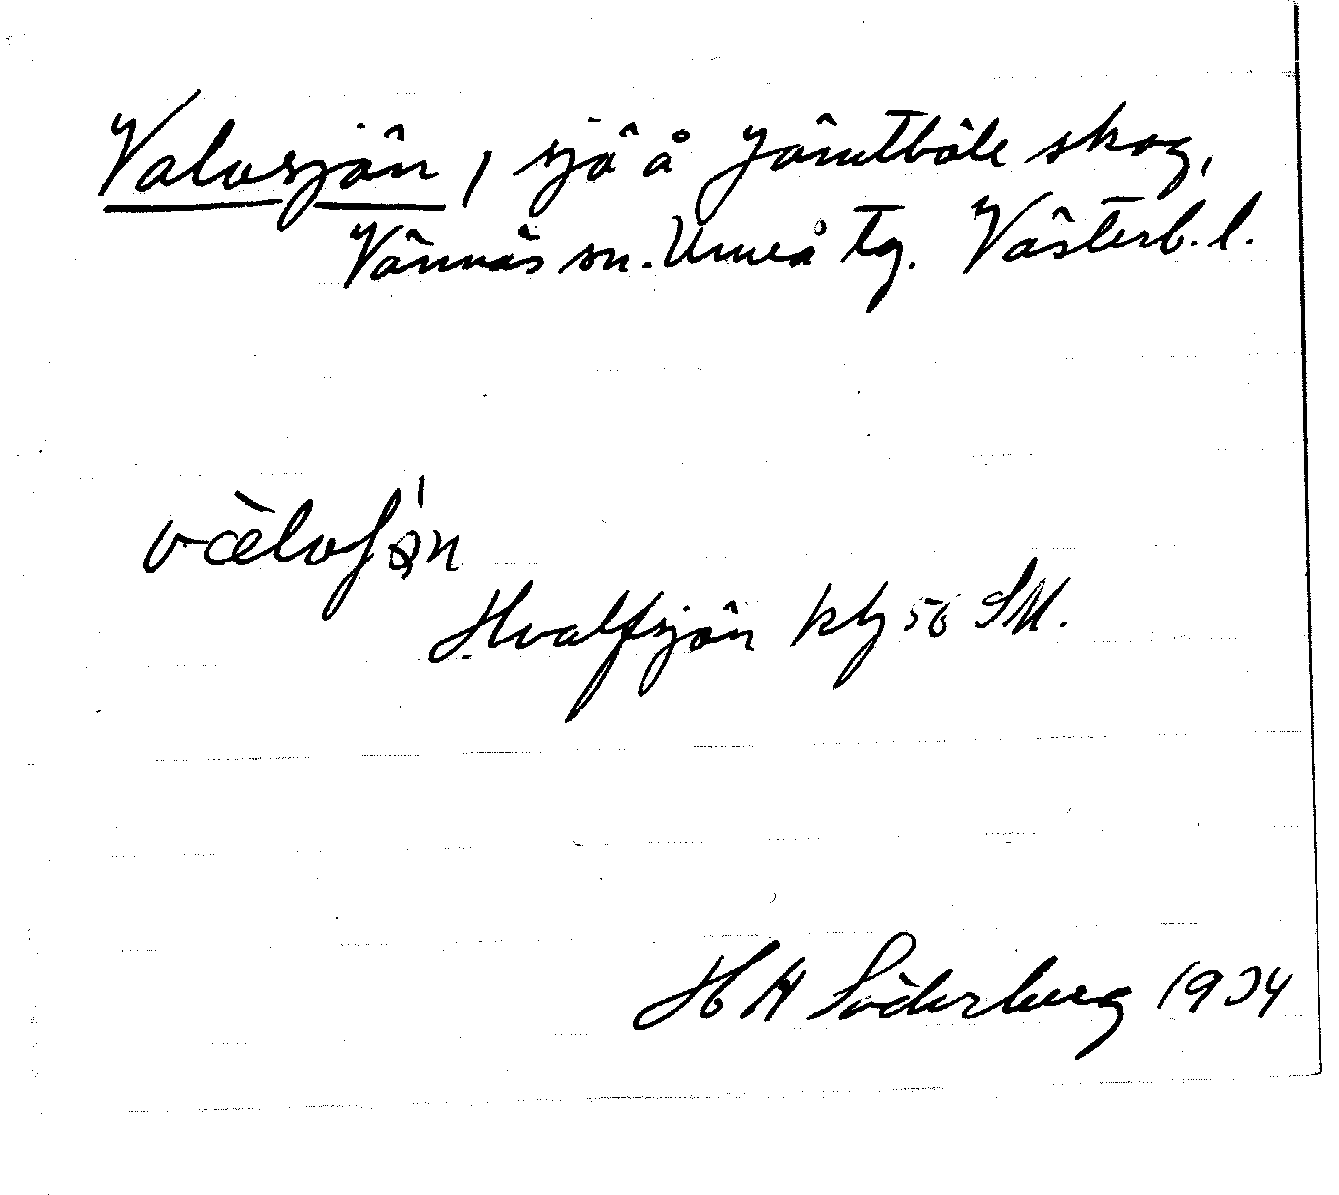 Valvsjön, sjö å Jämtböle skog,
Vännäs sn. Umeå tg. Västerb. l.
Hvalfsjön kbl 50 SM.
H A Söderberg 1934